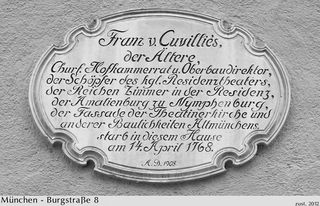 Franz v. Cuvilliés,
der Ältere,
Churf. Hofkammerrat u. Oberbaudirektor,
der Schöpfer des kgl. Residenztheaters,
der Reichen Zimmer in der Residenz,
der Amalienburg zu Nymphenburg,
der Fassade der Theatinerkirche und
anderer Baulichkeiten Altmünchens,
starb in diesem Hause
am 14. April 1768.
A. D. 1908.
München - Burgstraße 8
zust. 2012